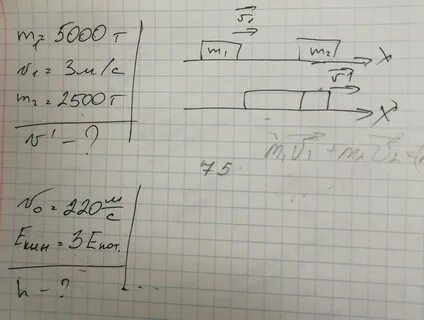 m₁ = 5000 т
v₁ = 3 м/с
m₂ = 2500 т
v' - ?
v₁
m₁ m₂ X
v'
X
m₁v₁ + m₂v₂ = (
75.
v₀ = 220 м/с
Eкин = 3 Eпот.
h - ?